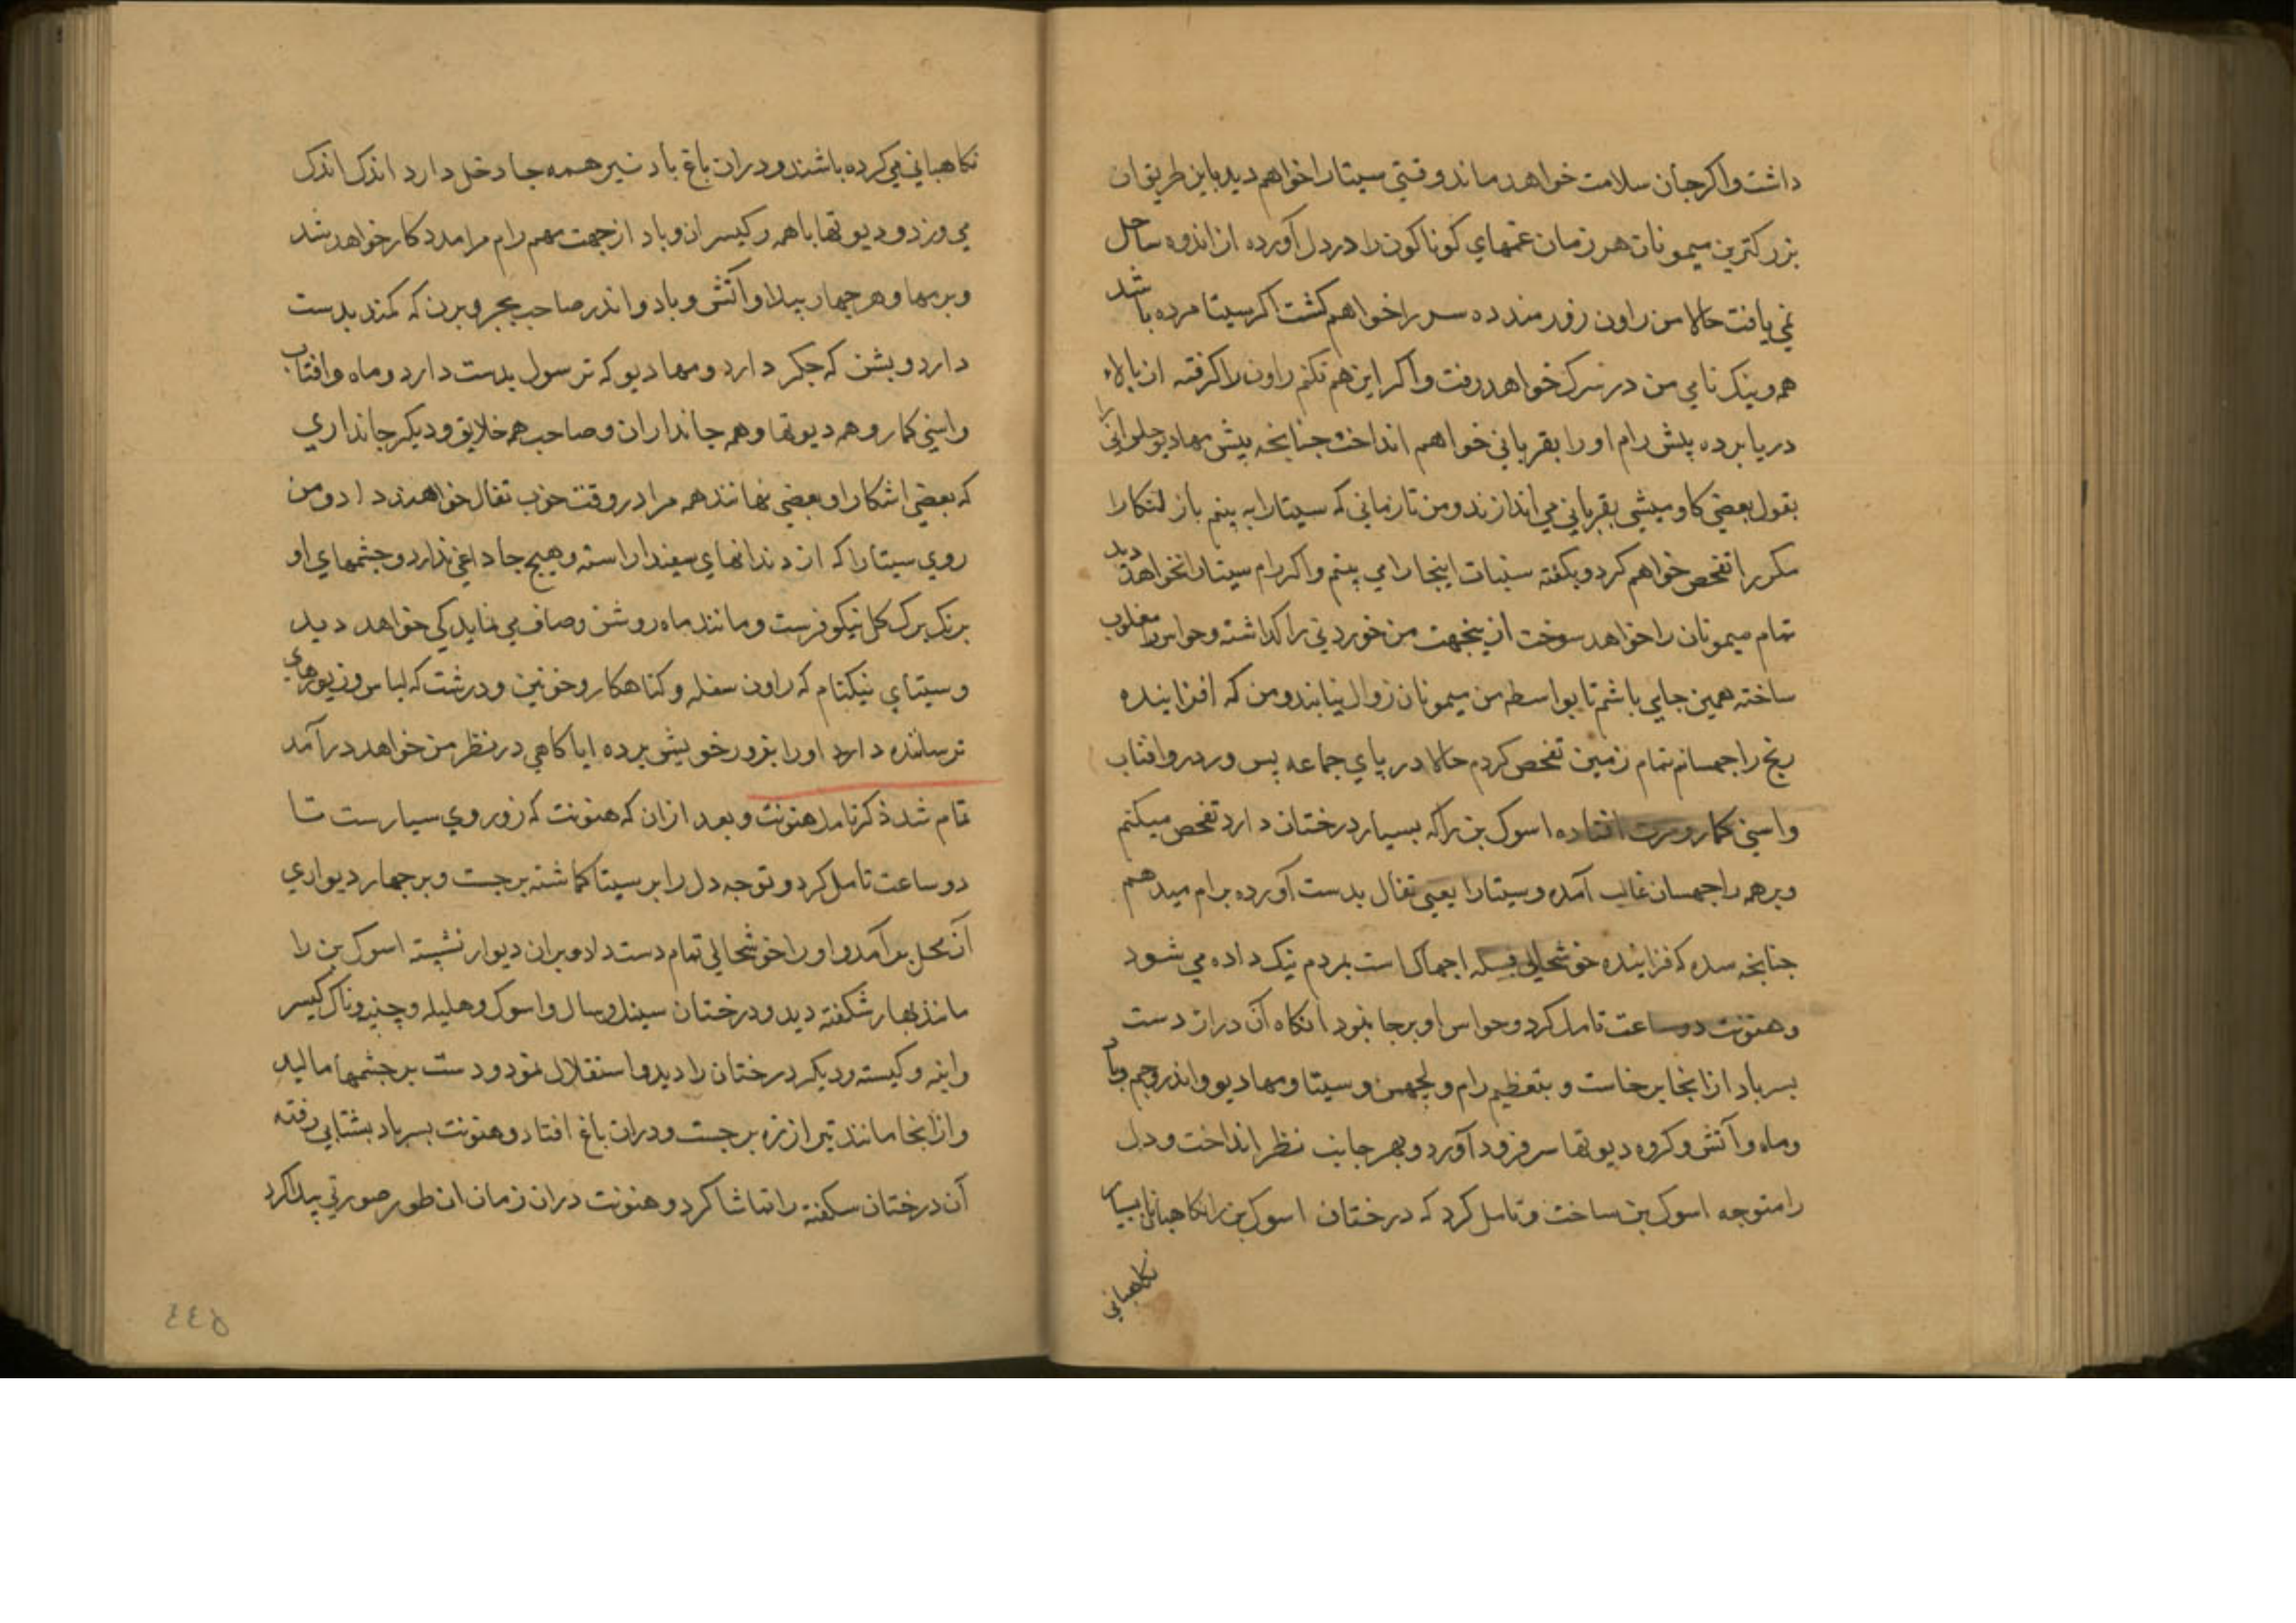 داشت واکر جان سلامت خواهد ماند وقتی سیتا را خواهم دید باین طریق ان
بزرکترین میمونان هر زمان غمهای کوناکون را در دل آورده از اندوه ساحل
نمی یافت حالا من راون زورمند ده سر را خواهم کشت اکر سیتا مرده باشد
همه نیک نامی من در نرک خواهد رفت واکر این هم نکنم راون را کرفته از بالاء
دریا برده پیش رام او را بقربانی خواهم انداخت چنانچه پیش مهادیو
بقول بعضی کاومیشی بقربانی می اندازند ومن تا زمانی که سیتا را به بینم باز لنکا را
مکرر تفحص خواهم کرد وبکفته سنبات اینجا را می بینم واکر رام سیتا را نخواهد دید
تمام میمونان را خواهد سوخت ازینجهت من خوردنی را کذاشته وحواس را مغلوب
ساخته همین جایی باشم تا بواسطه من میمونان زوال نیابند ومن که افزاینده
رنج راجهسانم تمام زمین تفحص کردم حالا در پای جماعه بس وردر وافتاب
واسنی کمار ومرت افتاده اسوک بن را که بسیار درختان دارد تفحص میکنم
وبر همه راجهسان غالب آمده وسیتا را یعنی تفال بدست آورده برام میدهم
چنانچه سده که فزاینده خوشحالی اجهاک است بمردم نیک داده می شود
وهنونت دو ساعت تامل کرد وحواس او بر جا نمود انکاه آن دراز دست
بسر باد از انجا برخاست و بتعظیم رام و لچهمن و سیتا ومهادیو واندر وجم وباد
وماه وآتش وکروه دیوتها سر فرود آورد وبهر جانب نظر انداخت ودل
را متوجه اسوک بن ساخت وتامل کرد که درختان اسوک بن را نکاهبانان بسیار
نکاهبانی
نکاهبانی می کرده باشند ودران باغ باد نیز همه جا دخل دارد اندک اندک
می وزد ودیوتها با همه رکیسران وباد از جهت مهم رام مرا مددکار خواهد شد
وبرمها وهر چهار پیلا وآتش وباد واندر صاحب بجر وبرن که کمند بدست
دارد وبشن که چکر دارد ومهادیو که ترسول بدست دارد وماه وافتاب
واسنی کمار وهمه دیوتها وهمه جانداران وصاحب همه خلایق ودیکر جانداری
که بعضی اشکارا وبعضی نهانند همه مرا در وقت خوب تفال خواهند داد ومن
روی سیتا را که از دندانهای سفید اراسته وهیچ جا داغی ندارد وچشمهای او
برنک برک کل نیکوفرست ومانند ماه روشن وصاف می نماید کی خواهد دید
وسیتای نیکنام که راون سفله وکناهکار وخونین ودرشت که لباس وزیورهای
ترساننده دارد او را بزور خویش برده ایا کاهی در نظر من خواهد درآمد
تمام شد ذکر تامل هنونت وبعد ازان که هنونت که زور وی بسیارست تا
دو ساعت تامل کرد وتوجه دل را بر سیتا کماشته برجست وبر چهار دیواری
آن محل برآمد واو را خوشحالی تمام دست داد وبران دیوار نشسته اسوک بن را
مانند بهار شکفته دید ودرختان سیندل وسال واسوک وهلیله وچنپه وناک کیسر
وانبه وکیسته ودیکر درختان را دید واستقلال نمود ودست بر چشمها مالید
وازانجا مانند تیر از زه برجست ودران باغ افتاد وهنونت بسر باد بشتابی رفته
آن درختان سکفته را تماشا کرد وهنونت دران زمان ان طور صورتی پیدا کرد